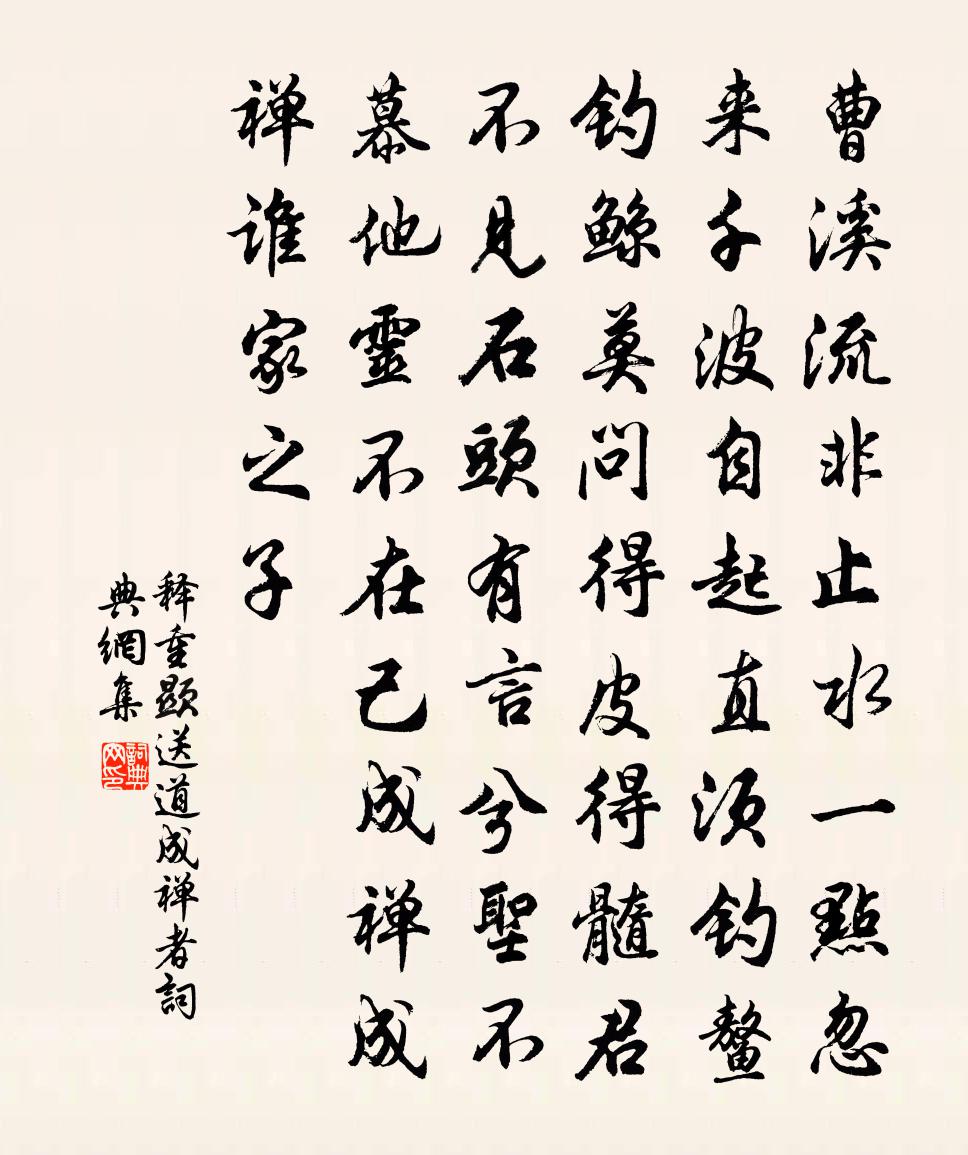 曹溪流非止水一點忽
来千波自起直须钓鳌
钓鲸莫问得皮得髓君
不見石頭有言兮聖不
慕他靈不在己成禅成
禅谁家之子
释重顯送道成禅者詞
典網集
詞典
网印